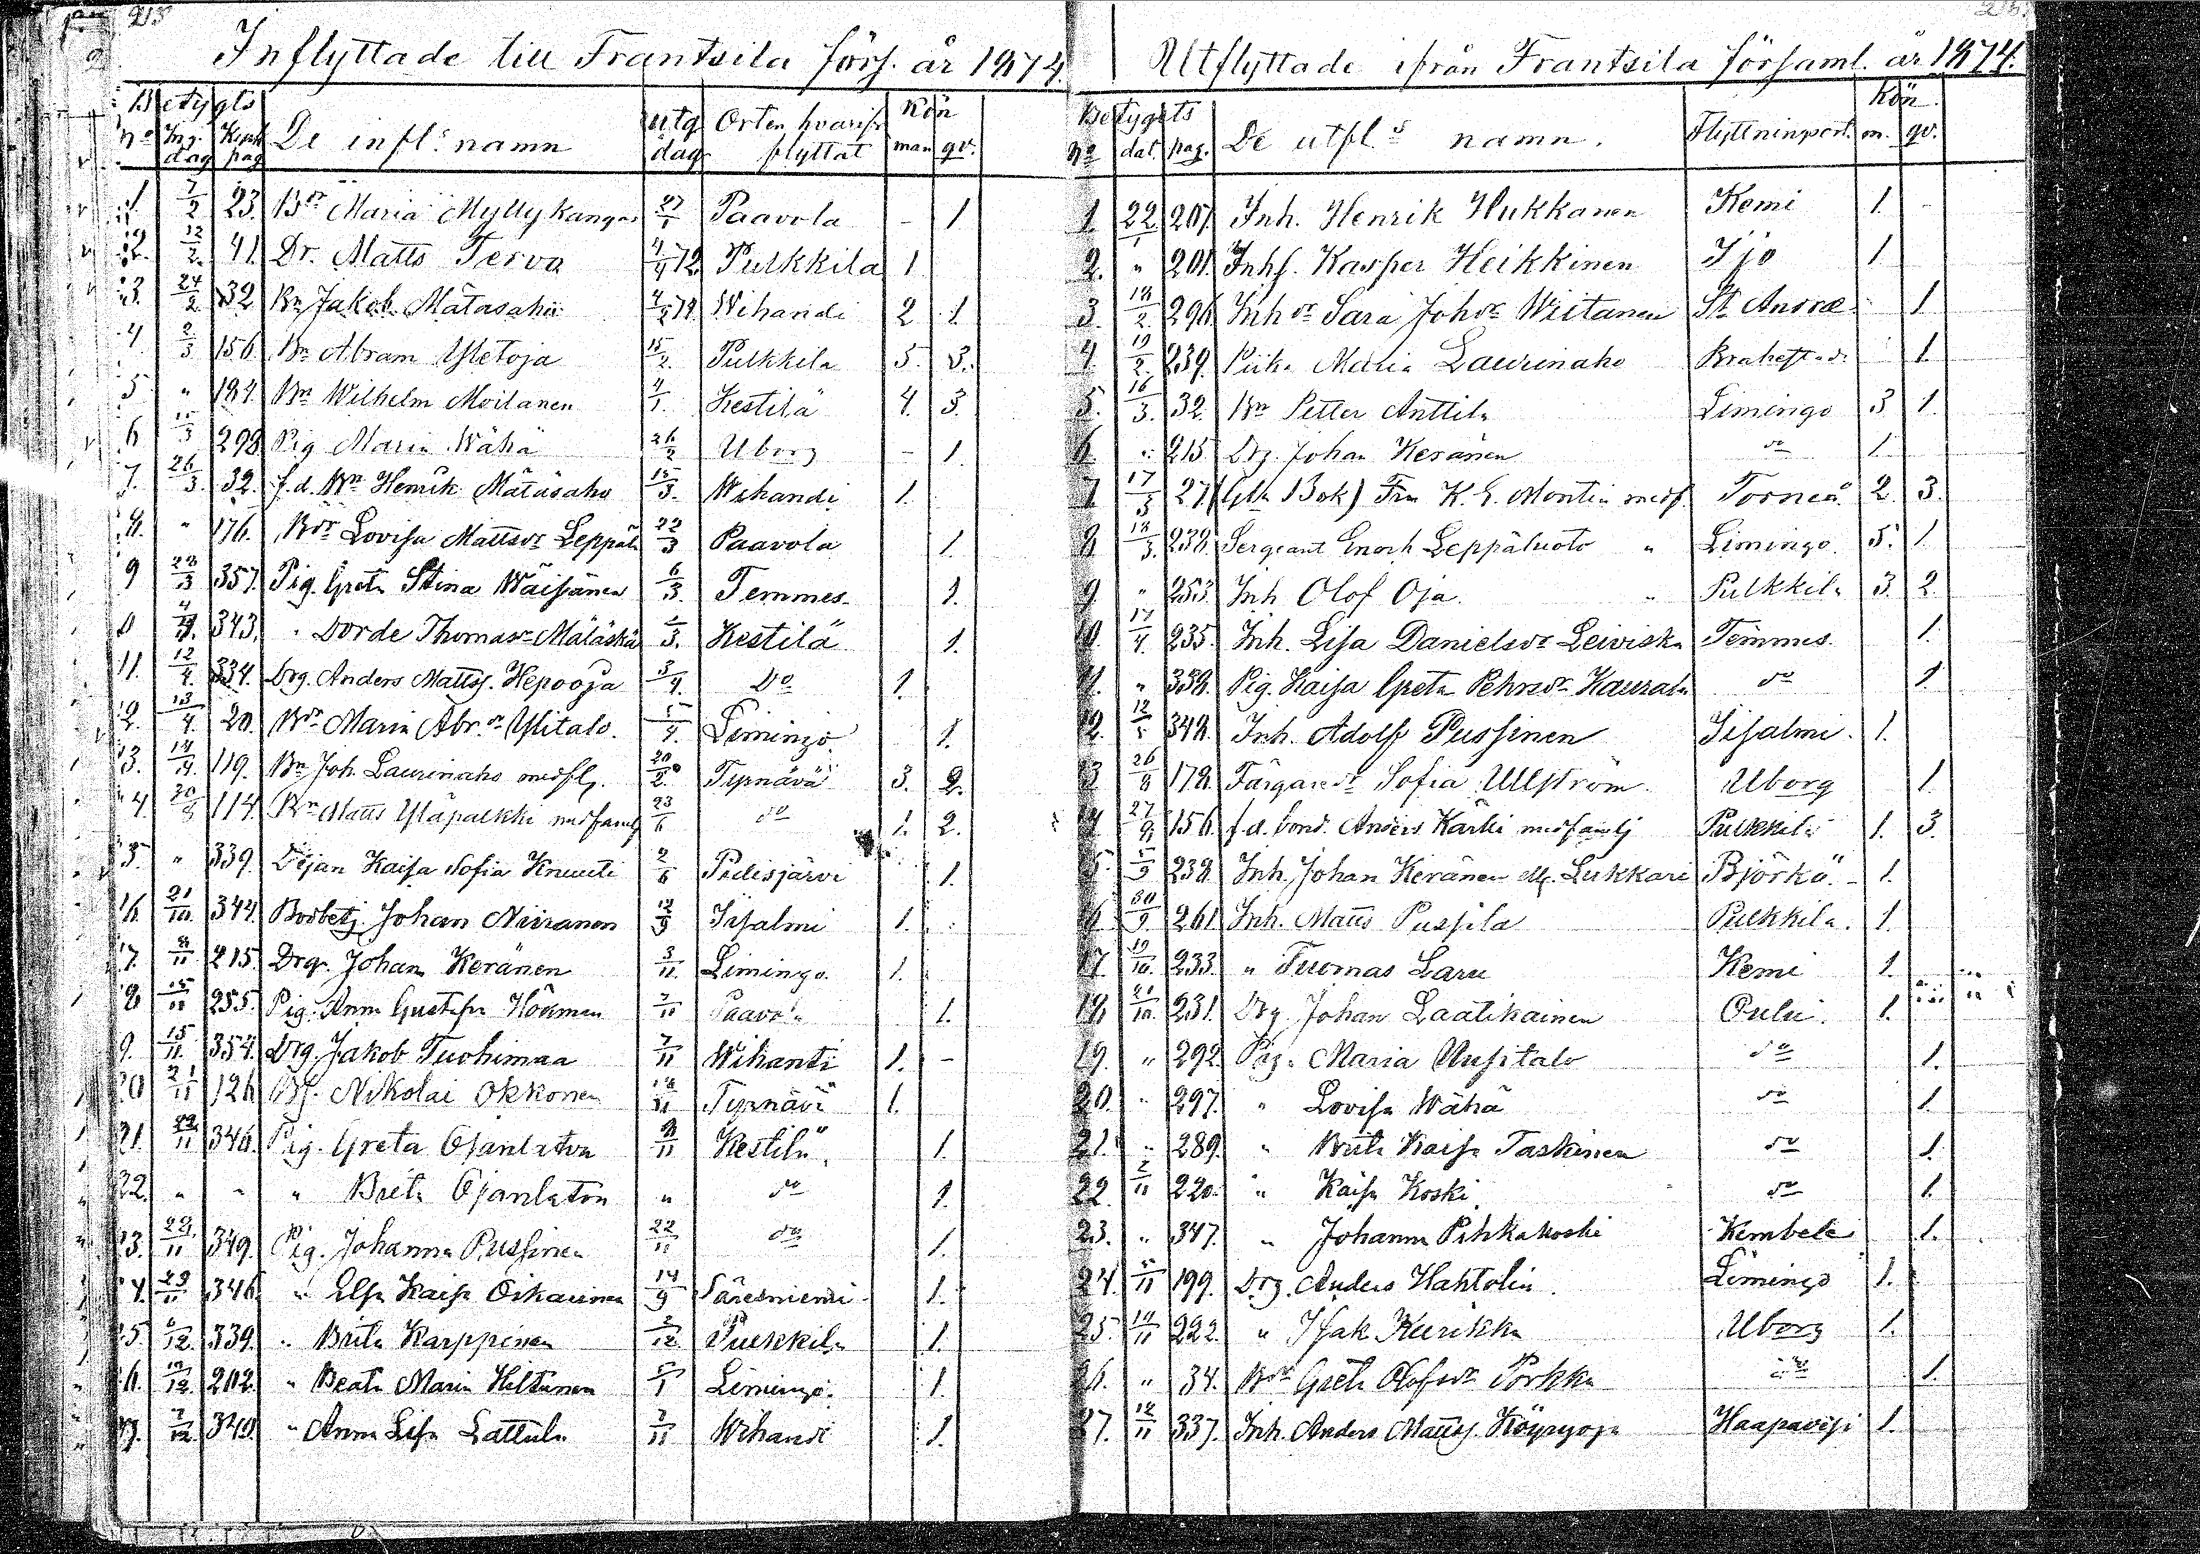 213
Inflyttade till Frantsila förs. år 1874.
Betygts Kön
No Ing. dag Kyrk pag De infl:s namn utg. dag Orten hvarifr flyttat man qv.
1 7/2 23. Bdr Maria Myllykangas 27/1 Paavola - 1
2. 12/2. 41. Dr. Matts Terva 4/4 72 Pulkkila 1
3. 24/2. 32 Bn Jakob Mätäsaho Wihandi 2 1.
4 2/3 156. Bn Abram Yletoja 15/2. Pulkkila 5. 3.
5 " 184. Bn Wilhelm Moilanen 4/1. Kestilä 4. 3.
6 15/3 298 Pig Maria Wähä 26/2 Uborg - 1.
7. 26/3. 32. f.d. Bn Henrik Mätäsaho 15/3. Wihandi 1.
8. " 176. Bdr Lovisa Mattsdr Leppälä 22/3 Paavola 1.
9 28/3 357. Pig. Greta Stina Wäisänen 6/3. Temmes. 1.
343. " Dorde Thomasdr Määtäskä Kestilä 1.
11. 12/4. 334. Drg. Anders Mattss. Hepooja 3/4. Do 1.
2. 13/4. 20. Bdr Maria Abr.dr Ylitalo. 5/4. Limingo 1.
3. 14/4. 119. Bn Joh. Laurinaho medflj. 20/2. Tyrnävä 3. 2.
4. 114. Bn Matts Yläpalkki medfamlj 23/6 do 1. 2.
5 " 339. Dejan Kaisa Sofia Knuuti 2/6 Pudisjärvi 1.
16. 21/10. 344. Borbetj. Johan Niiranen 12/9 Iisalmi 1.
7. 8/11 215. Drg. Johan Keränen 3/11. Limingo 1.
8 15/11 255. Pig. Anna Gustafva Hökman 7/11 Paavola 1.
9. 15/11. 354. Drg. Jakob Tuohimaa 7/11 Wihanti 1. -
20 21/11 126 Bs. Nikolai Okkonen 18/11 Tyrnävä 1.
21. 22/11 346. Pig. Greta Ojanlatva 8/11 Kestilä. 1.
22. " " " Brita Ojanlatva " do 1.
3. 22/11 349. Pig. Johanna Pussinen 22/11 do 1.
4. 29/11 346. " Elsa Kaisa Oikarinen 14/9 Säresniemi 1.
5. 6/12. 339. " Brita Karppinen 2/12. Pulkkila 1.
6. 12/12. 202. " Beata Maria Hiltunen 5/1 Limingo. 1.
7. 7/12. 340. " Anna Lisa Lattula 7/11 Wihandi 1.
Utflyttade ifrån Frantsila församl. år 1874.
Betygets Kön.
No dat. pag. De utfl:s namn. Flyttninport. m. qv.
1. 22/1 207. Inh. Henrik Hukkanen Kemi 1. -
2. " 201. Inhs. Kasper Heikkinen Ijo 1
3. 18/2. 296. Inhdr Sara Johdr Wiitanen St Andræ 1.
4. 19/2. 239. Piika Maria Laurinaho Brahestad. 1.
5. 16/3. 32. Bn Petter Anttila Limingo 3 1.
6. " 215. Drg. Johan Keränen do 1.
7 17/3 27 (Gla Bok) Fru K. E. Montin medf. Torneå 2. 3.
8 18/3. 238. Sergeant Enoch Leppäluoto " Limingo. 5. 1.
9. " 253. Inh Olof Oja. " Pulkkila 3. 2.
10. 17/4. 235. Inh. Lisa Danielsdr Leiviskä Temmes. 1.
11. " 338. Pig. Kaisa Greta Pehrsdr Kaurala do 1.
12. 12/5 348. Inh. Adolf Pussinen Iisalmi. 1.
3 26/8 178. Färgaredr Sofia Ullström Uborg 1.
4. 27/9. 156. f.d. bond. Anders Kärki medfamlj Pulkkila 1. 3.
5. 5/9 238. Inh. Johan Keränen Lukkari Björkö. - 1.
6 30/9 261 Inh. Matts Pussila Pulkkila. 1.
17. 19/10. 233. " Tuomas Laru Kemi 1.
18. 21/10. 231. Drg. Johan Laatikainen Oulu. 1.
19. " 292. Pig. Maria Uusitalo do 1.
20. " 297. " Lovisa Wähä do 1.
21. " 289. " Brita Kaisa Taskinen do 1.
22. 2/11 220. " Kaisa Koski do 1.
23. " 347. " Johanna Pihkakoski Kembele 1.
24. 5/11 199. Drg. Anders Hahtolin. Limingo 1.
25. 10/11 222. " Isak Keirikka Uborg 1.
26. " 34. Bdr Greta Olofsdr Porkka do 1.
27. 12/11 337. Inh. Anders Mattss. Köyryoja Haapavesi 1.